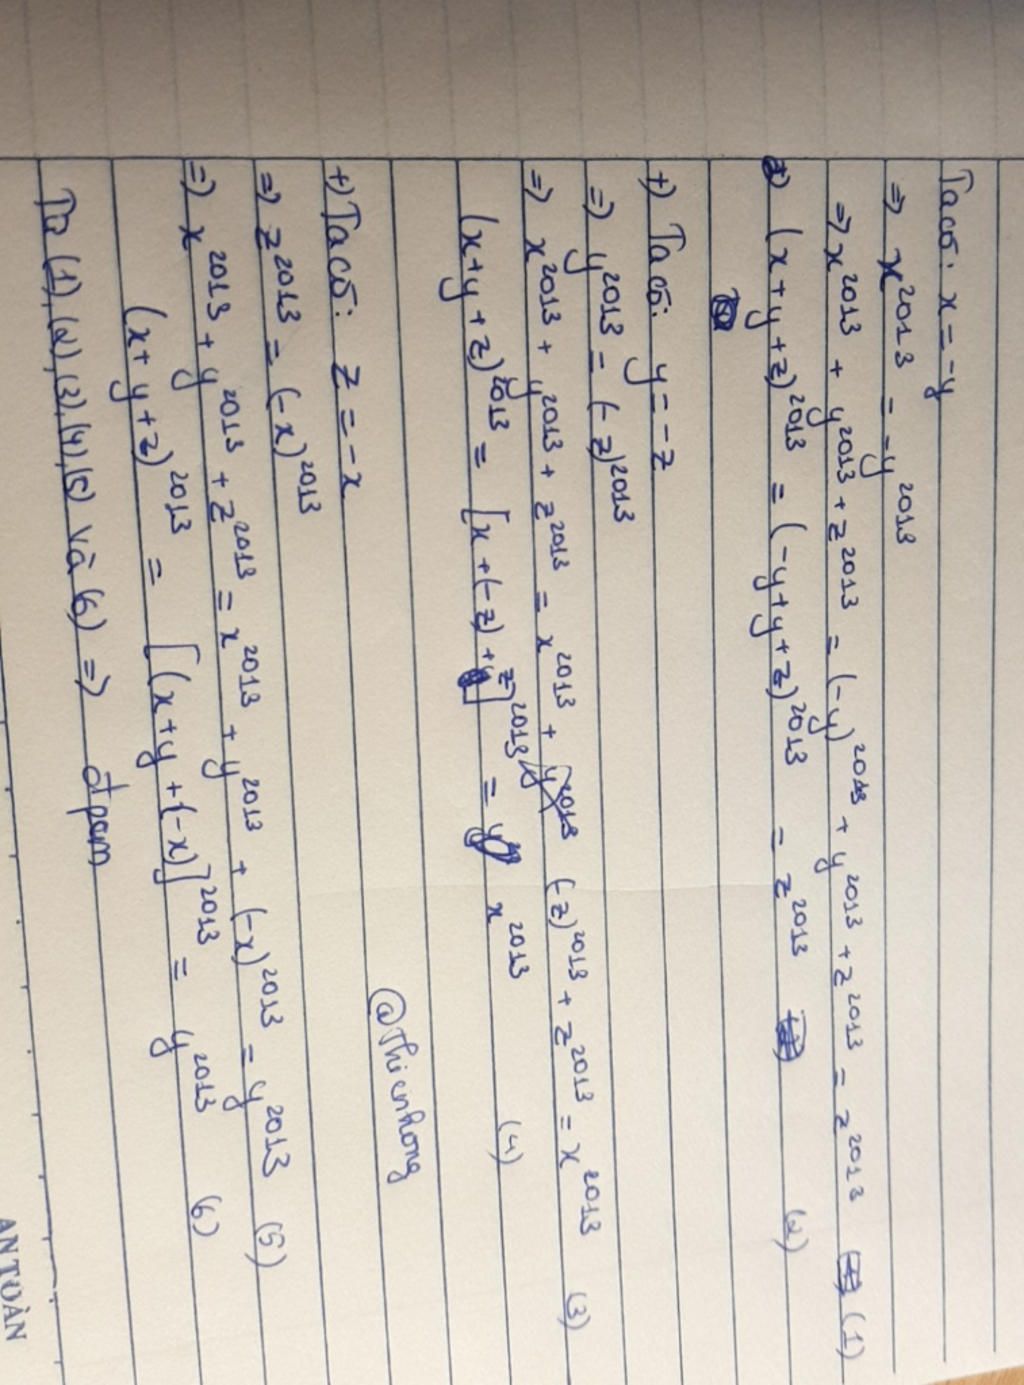 Ta có: x = -y
=> x^2013 = -y^2013
=> x^2013 + y^2013 + z^2013 = (-y)^2013 + y^2013 + z^2013 = z^2013 (1)
(x+y+z)^2013 = (-y+y+z)^2013 = z^2013 (2)
+) Ta có: y = -z
=> y^2013 = (-z)^2013
=> x^2013 + y^2013 + z^2013 = x^2013 + (-z)^2013 + z^2013 = x^2013 (3)
(x+y+z)^2013 = [x+(-z)+z]^2013 = x^2013 (4)
@Thienhong
+) Ta có: z = -x
=> z^2013 = (-x)^2013
=> x^2013 + y^2013 + z^2013 = x^2013 + y^2013 + (-x)^2013 = y^2013 (5)
(x+y+z)^2013 = [(x+y+(-x)]^2013 = y^2013 (6)
Từ (1),(2),(3),(4),(5) và (6) => đpcm
AN TOÀN